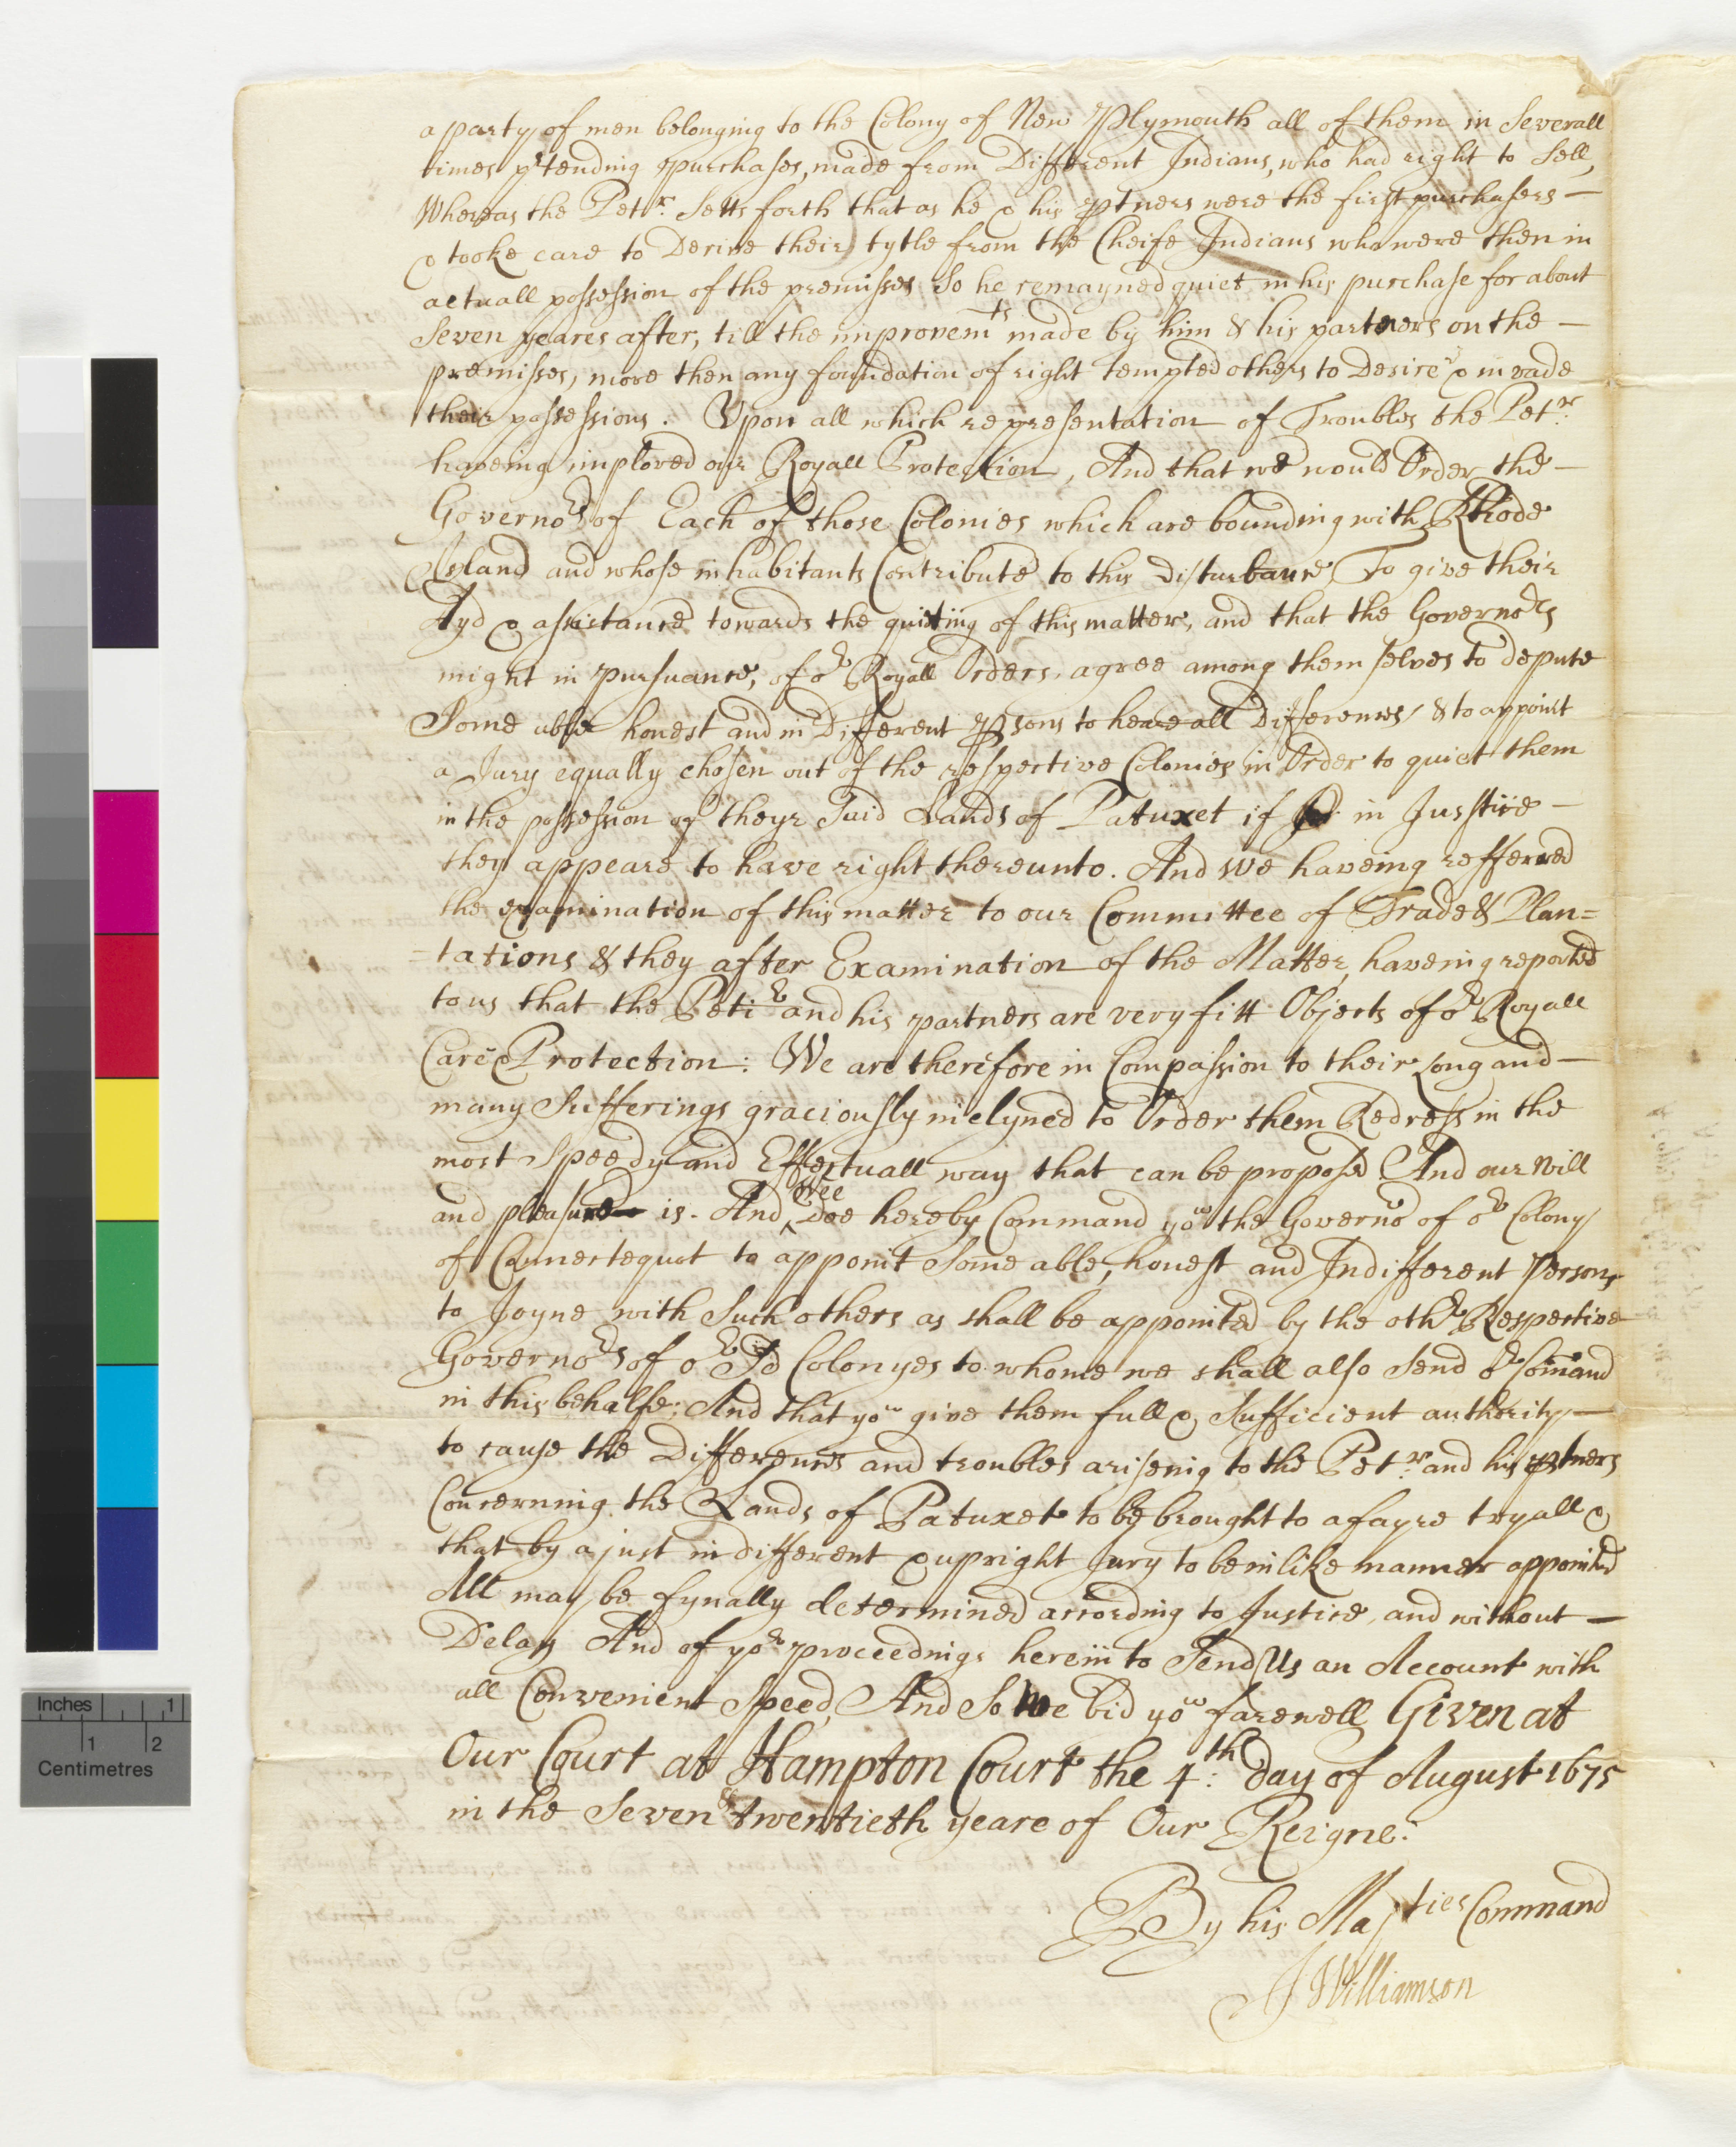 a party of men belonging to the Colony of New Plymouth all of them in Severall
times p^rtending purchases, made from Different Indians, who had right to Sell,
Whereas the Pet^r. Setts forth that as he & his ptners were the first purchasers —
& tooke care to Derive their tytle from the Cheife Indians who were then in
actuall possession of the premisses So he remayned quiet in his purchase for about
Seven yeares after, till the improvem^ts made by him & his partners on the —
premisses, more then any foundation of right tempted others to Desire & invade
their possessions. Upon all which representation of Troubles the Pet^r.
haveing implored our Royall Protection, And that we would Order the —
Governo^rs of Each of those Colonies which are bounding with Rhode
Island and whose inhabitants Contribute to this Disturbance, To give their
Ayd & assistance towards the quitting of this matter, and that the Governo^rs
might in pursuance, of o^r Royall Orders, agree among themselves to depute
Some able honest and inDifferent psons to heare all Differences, & to appoint
a Jury equally chosen out of the respective Colonies in Order to quiet them
in the possession of theyr Said Lands of Patuxet if in Justice —
they appeare to have right thereunto. And We haveing refferred
the examination of this matter to our Committee of Trade & Plan=
=tations & they after Examination of the Matter, haveing reported
to us that the Peti^r and his partners are very fitt Objects of o^r Royall
Care & Protection: We are therefore in Compassion to their long and —
many Sufferings graciously inclyned to Order them Redress in the
most Speedy and Effectuall way that can be proposed And our Will
and pleasure is. And ^Wee Doe hereby Command yo^u the Governo^r of o^r Colony
of Connectequot to appoint Some able, honest and Indifferent Persons
to Joyne with Such others as shall be appointed by the oth^r Respective
Governo^rs of o^r Sd Colonyes to whome we shall also Send o^r Comand
in this behalfe; And that yo^u give them full & Sufficient authority —
to cause the Differences and troubles ariseing to the Pet^r. and his ptners
Concerning the Lands of Patuxet to be brought to a fayre tryall &
that by a just indifferent & upright Jury to be in like manner appointed
All may be fynally determined according to Justice, and without —
Delay And of yo^r proceedings herein to Send Us an Account with
all Convenient Speed, And So We bid yo^u farewell Given at
Our Court at Hampton Court the 4^th: day of August 1675
in the Seven & twentieth yeare of Our Reigne.
By his Maj^ties Command
J Williamson
Inches 1
1 2
Centimetres